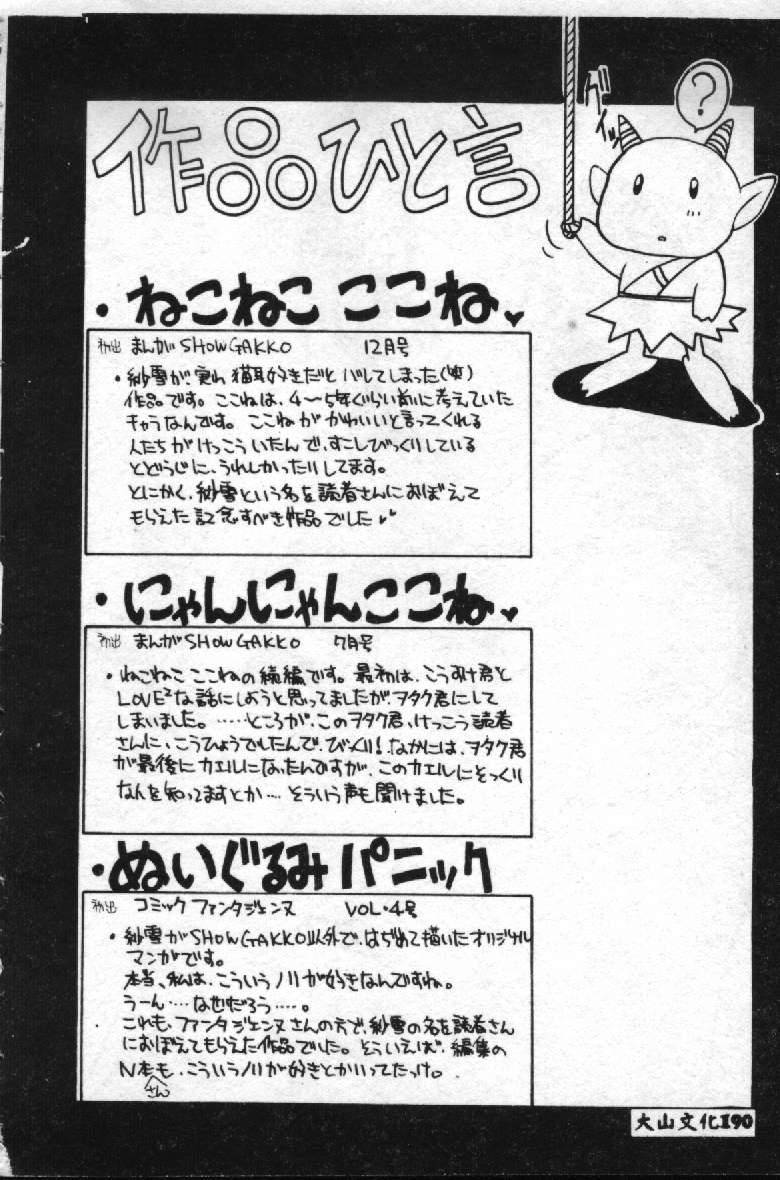 作品ひと言
?
グイッ
・ねこねこ ここね♥
初出 まんがSHOW GAKKO 12月号
・紗雪が、実は猫耳好きだとバレてしまった(笑)
作品です。ここねは、4〜5年ぐらい前に考えていた
キャラなんです。ここねがかわいいと言ってくれる
人たちがけっこういたんで、すこしびっくりしている
とどうじに、うれしかったりしてます。
とにかく、紗雪という名を読者さんにおぼえて
もらえた記念すべき作品でした♥
・にゃんにゃんここね♥
初出 まんがSHOW GAKKO 7月号
・ねこねこ ここねの続編です。最初は、こうすけ君と
LOVE²な話にしようと思ってましたが、ヲタク君にして
しまいました。……ところが、このヲタク君、けっこう読者
さんに、こうひょうでしたんで、びっくり!なかには、ヲタク君
が最後にカエルになったんですが、このカエルにそっくり
なんを知ってますとか…そういう声も聞けました。
・ぬいぐるみパニック
初出 コミックファンタジェンヌ VOL・4号
・紗雪がSHOW GAKKO以外で、はじめて描いたオリジナル
マンガです。
本当、私は、こういうノリが好きなんですね。
うーん…な也だろう……。
これも、ファンタジェンヌさんの方で、紗雪の名を読者さん
におぼえてもらえた作品でした。そういえば、編集の
N本さんも、こういうノリが好きとかいってたっけ。
大山文化190